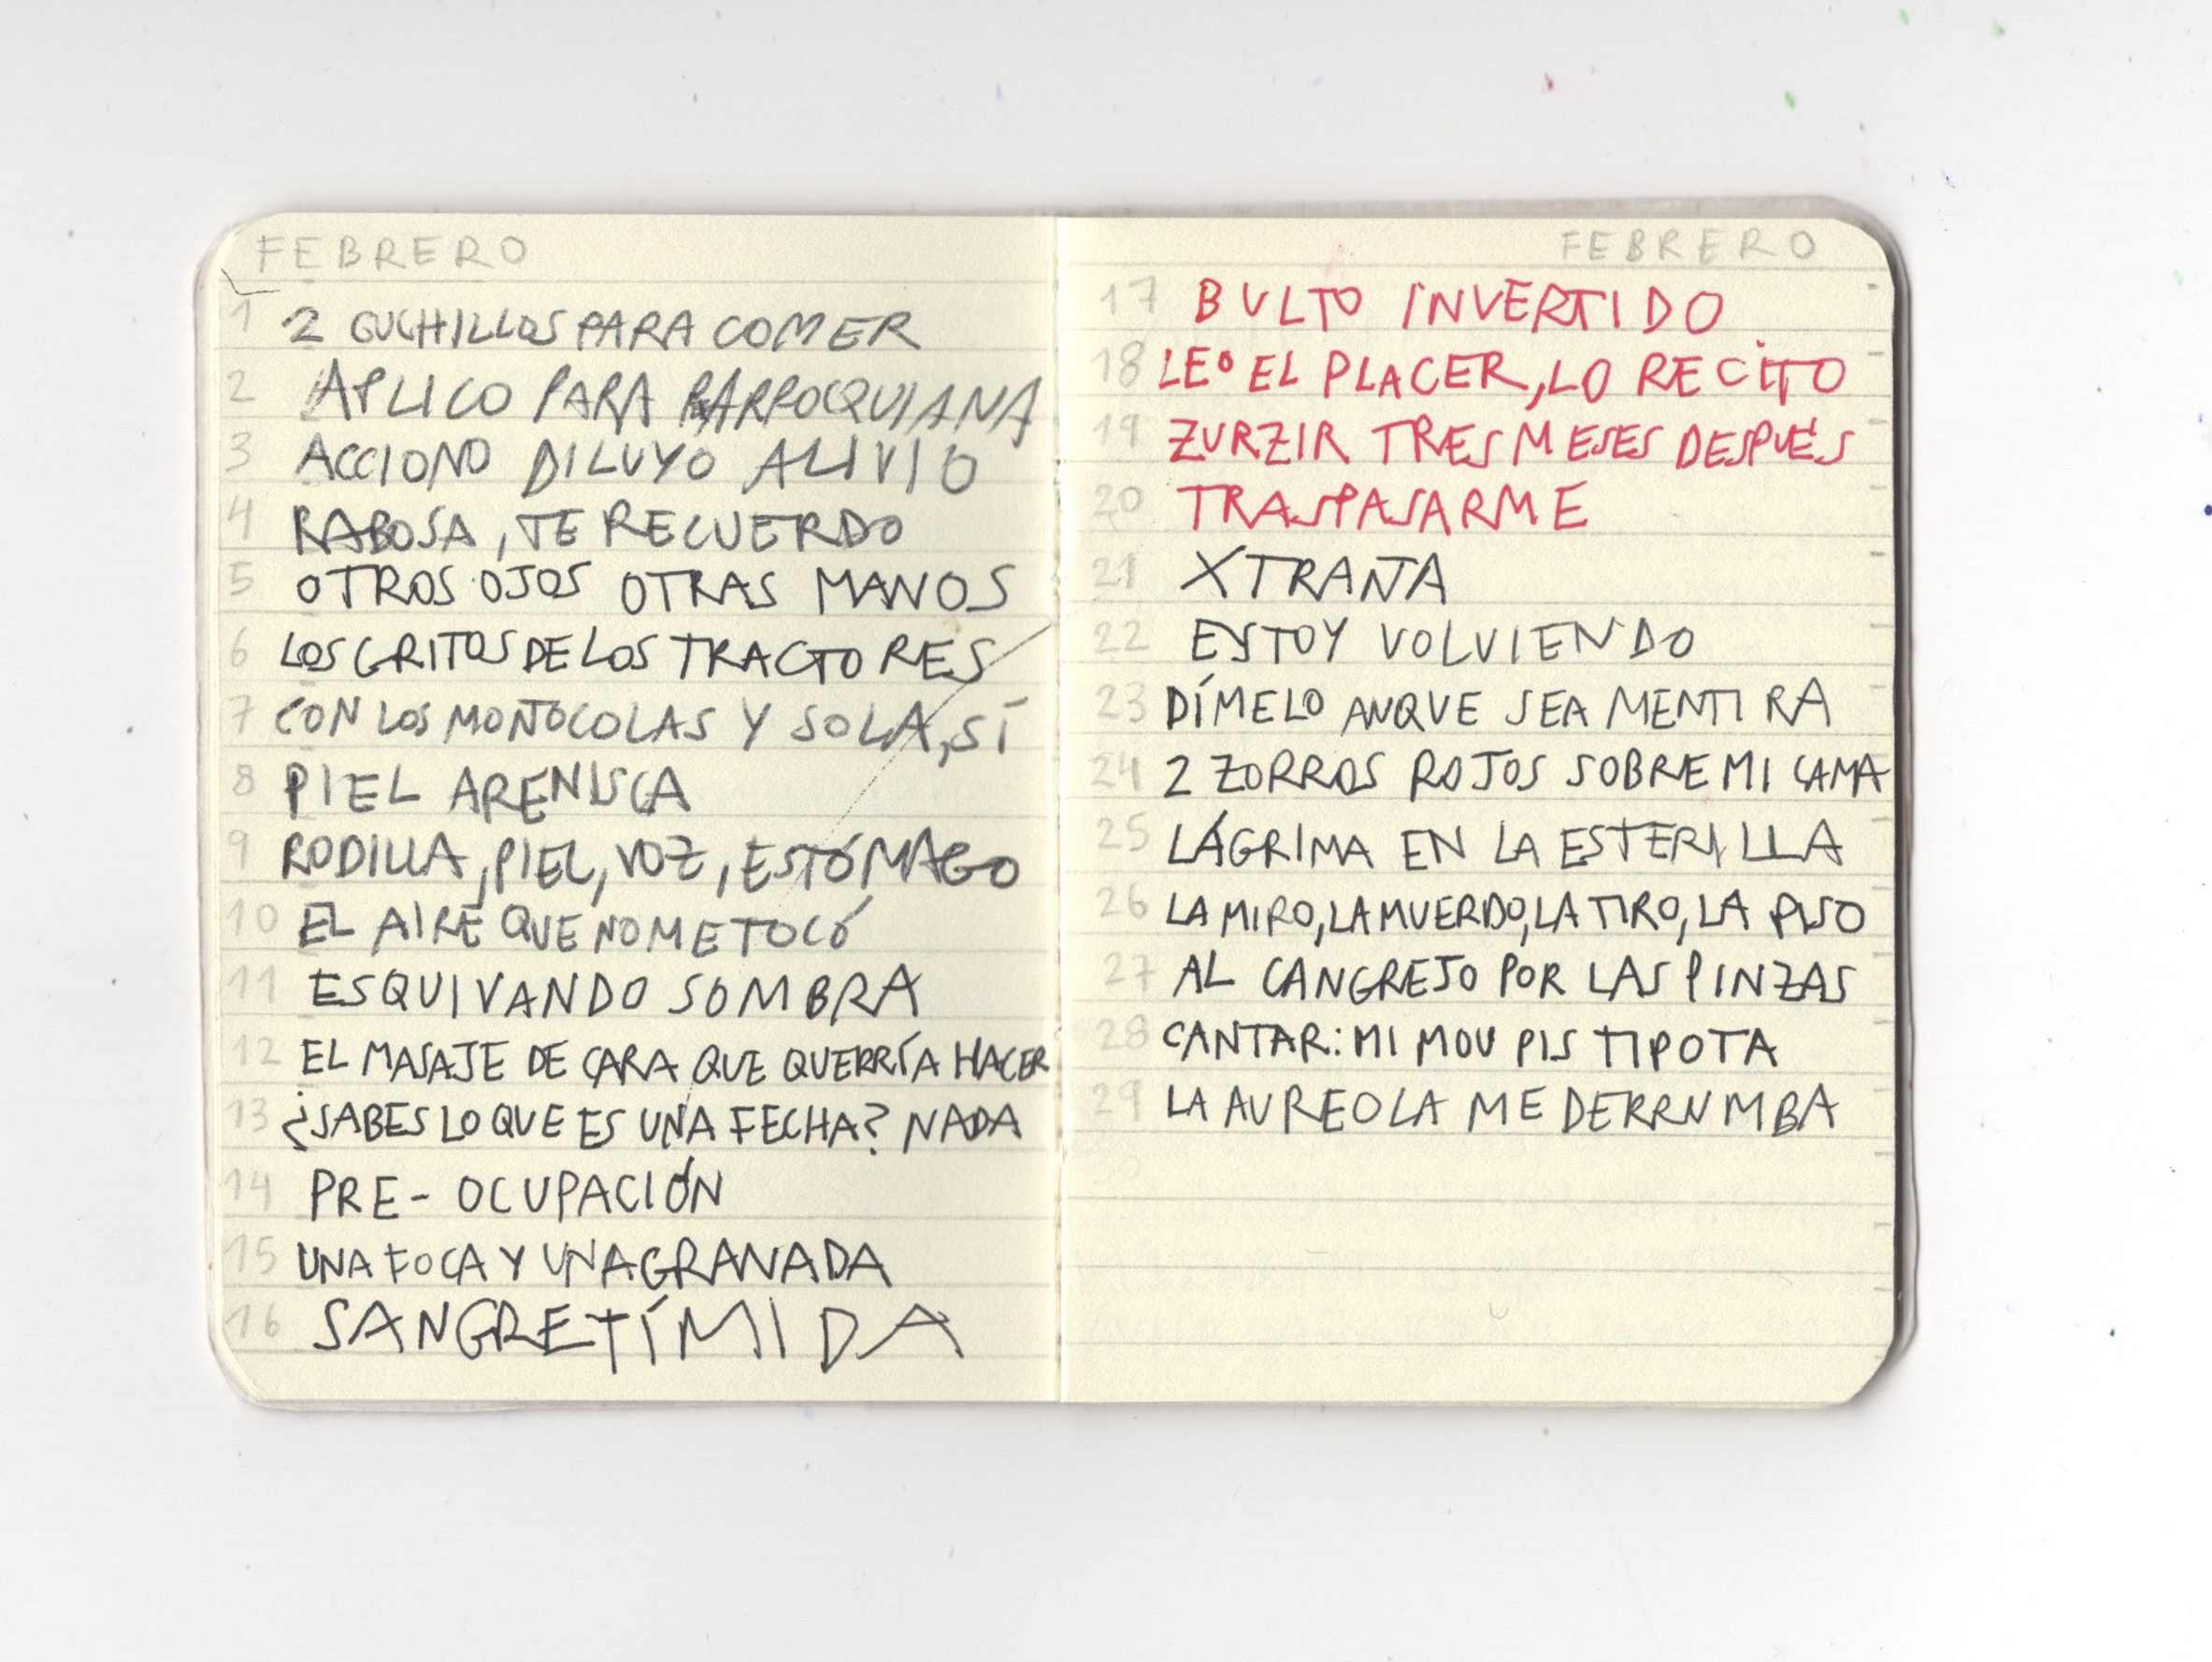 FEBRERO
1 2 CUCHILLOS PARA COMER
2 APLICO PARA PARROQUIANA
3 ACCIONO DILUYO ALIVIO
4 RABOSA, TE RECUERDO
5 OTROS OJOS OTRAS MANOS
6 LOS GRITOS DE LOS TRACTORES
7 CON LOS MOÑOCOLAS Y SOLA, SÍ
8 PIEL ARENISCA
9 RODILLA, PIEL, VOZ, ESTÓMAGO
10 EL AIRE QUE NO ME TOCÓ
11 ESQUIVANDO SOMBRA
12 EL MASAJE DE CARA QUE QUERRÍA HACER
13 ¿SABES LO QUE ES UNA FECHA? NADA
14 PRE-OCUPACIÓN
15 UNA FOCA Y UNA GRANADA
16 SANGRE TÍMIDA
FEBRERO
17 BULTO INVERTIDO
18 LEO EL PLACER, LO RECITO
19 ZURZIR TRES MESES DESPUÉS
20 TRASPASARME
21 XTRAÑA
22 ESTOY VOLVIENDO
23 DÍMELO AUNQUE SEA MENTIRA
24 2 ZORROS ROJOS SOBRE MI CAMA
25 LÁGRIMA EN LA ESTERILLA
26 LA MIRO, LA MUERDO, LA TIRO, LA PISO
27 AL CANGREJO POR LAS PINZAS
28 CANTAR: MI MOU PIS TIPOTA
29 LA AUREOLA ME DERRUMBA